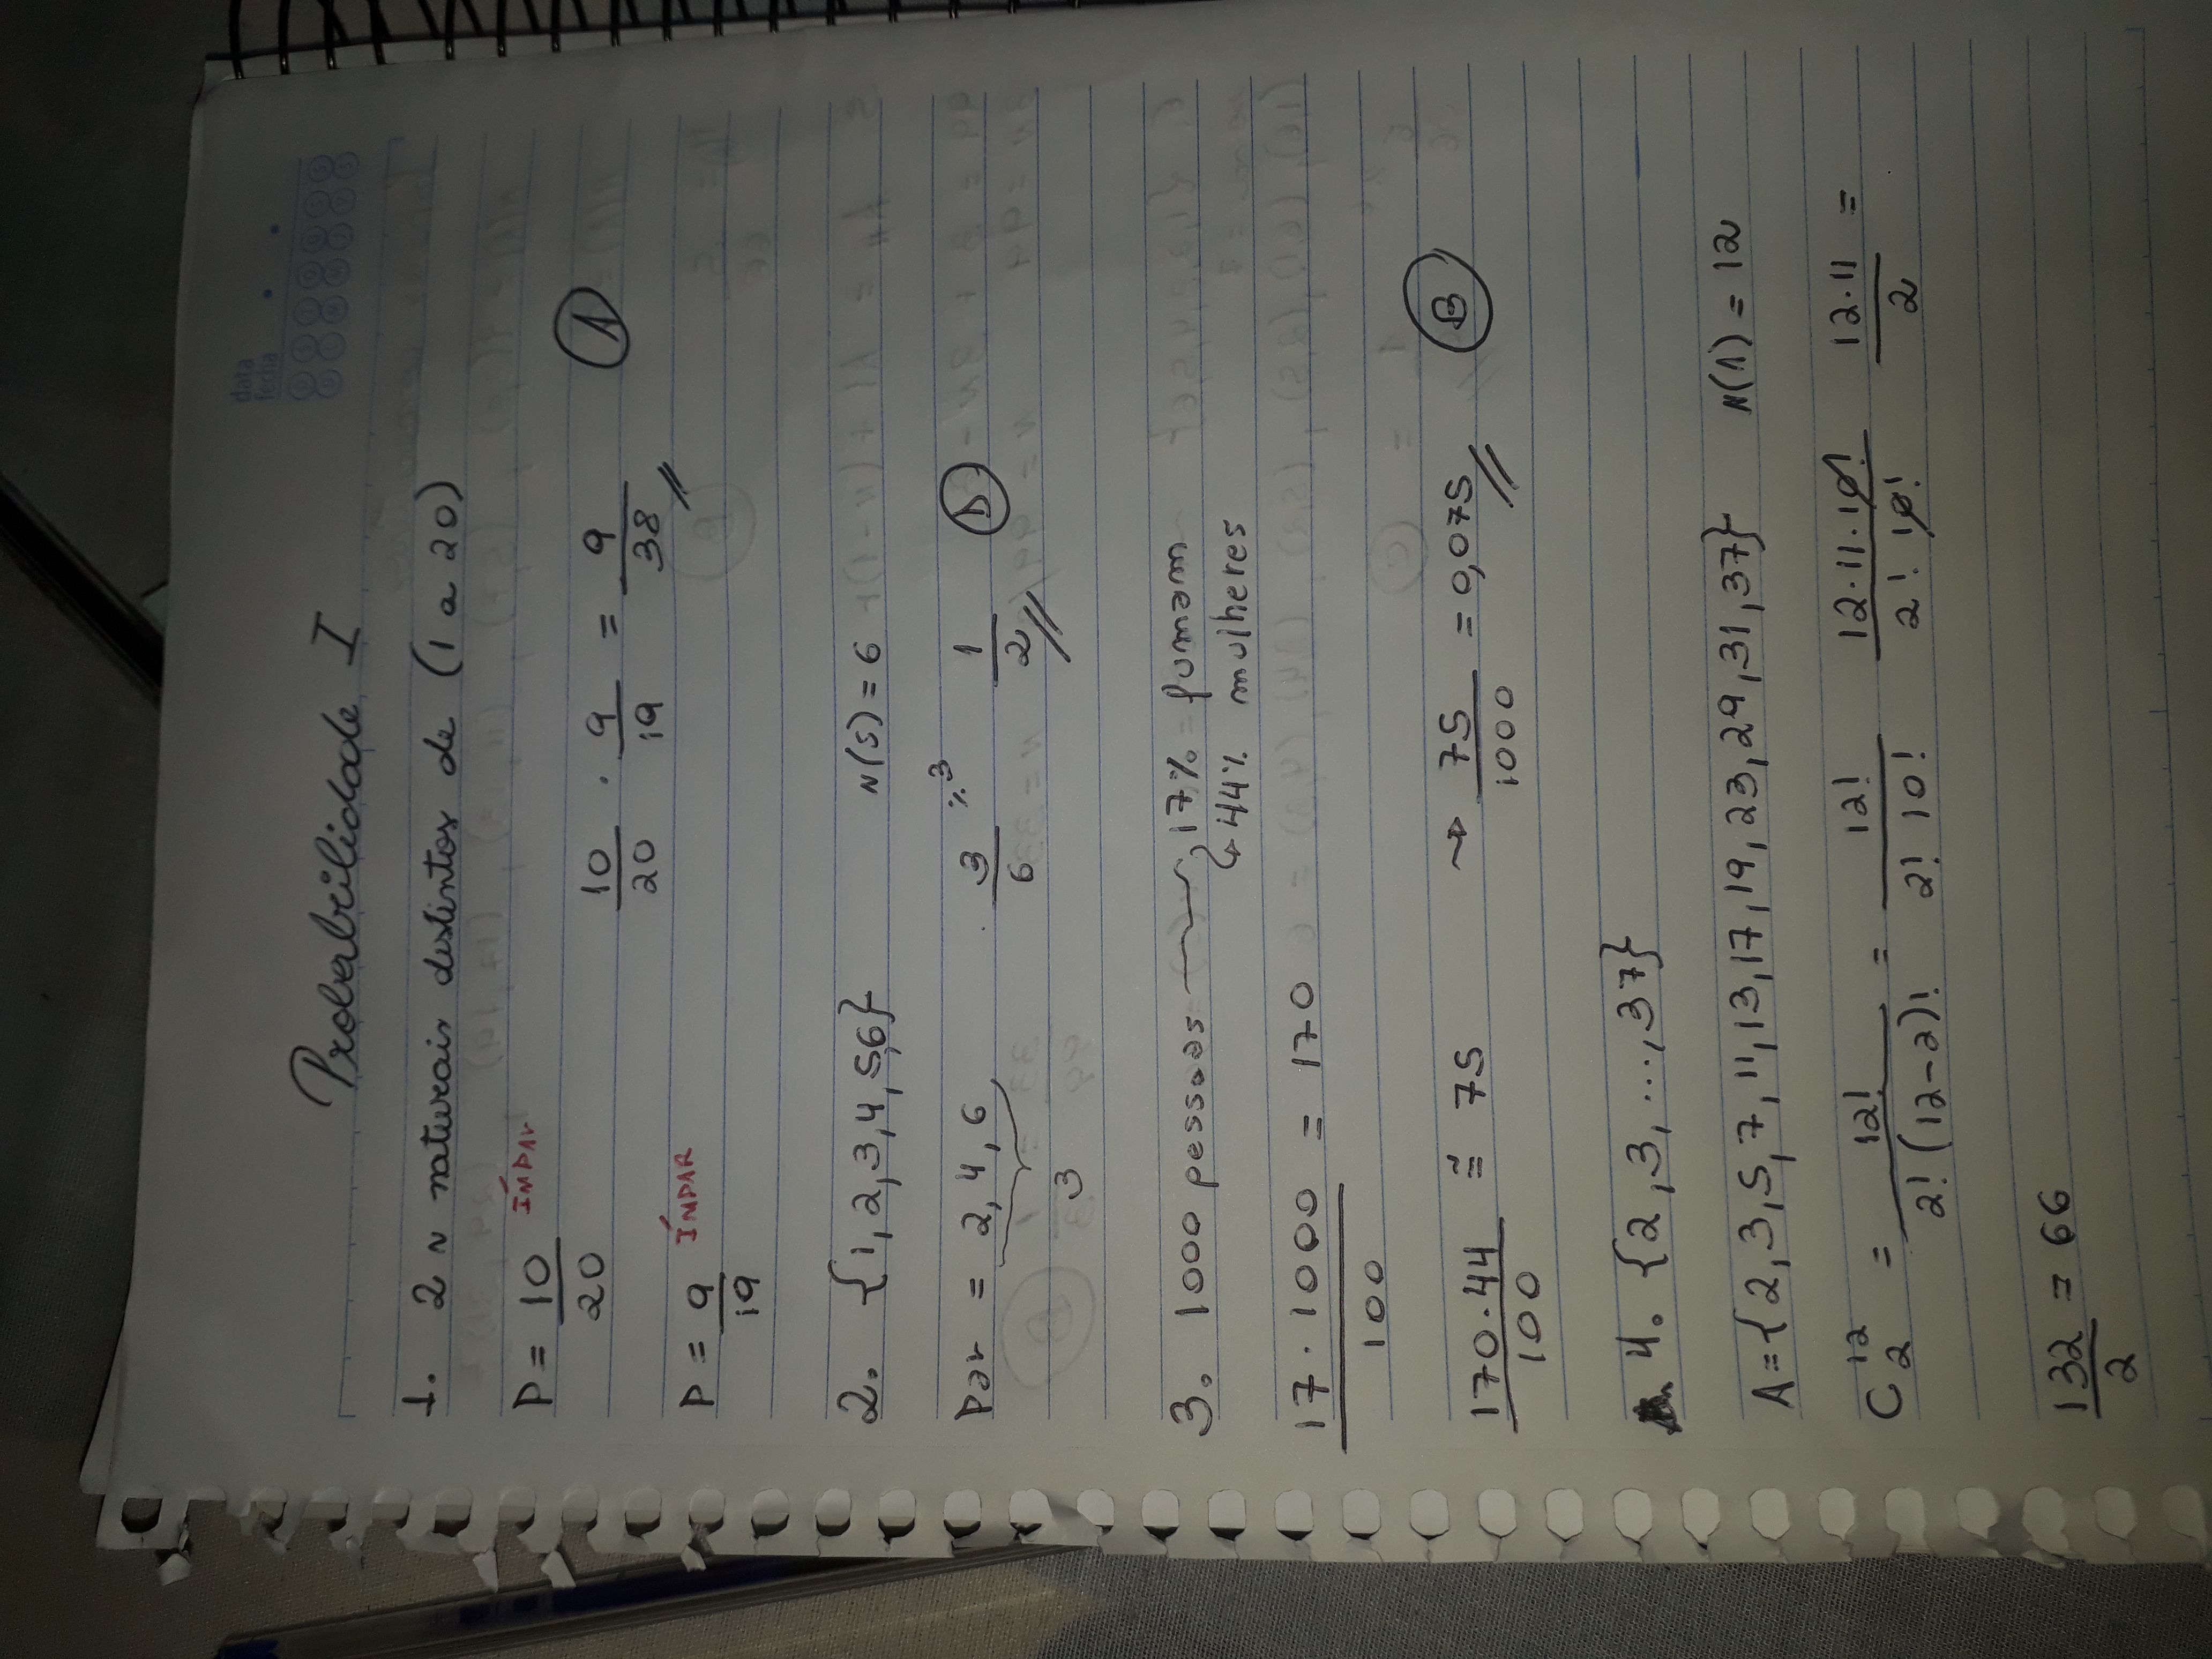 data
fecha
Probabilidade I
1. 2 n naturais distintos de (1 a 20)
P = 10/20 ÍMPAR
10/20 . 9/19 = 9/38 A
P = 9/19 ÍMPAR
2. {1, 2, 3, 4, 5, 6} N(S) = 6
Par = 2, 4, 6 3/6 ÷3 1/2 D
3
3. 1000 pessoas 17% fumam
44% mulheres
17 . 1000/100 = 170
170 . 44/100 ≅ 75 → 75/1000 = 0,075 B
4. {2, 3, ..., 37}
A = {2, 3, 5, 7, 11, 13, 17, 19, 23, 29, 31, 37} N(A) = 12
C 12 2 = 12!/2! (12-2)! = 12!/2! 10! 12 . 11 . 10!/2! 10! 12 . 11/2 =
132/2 = 66